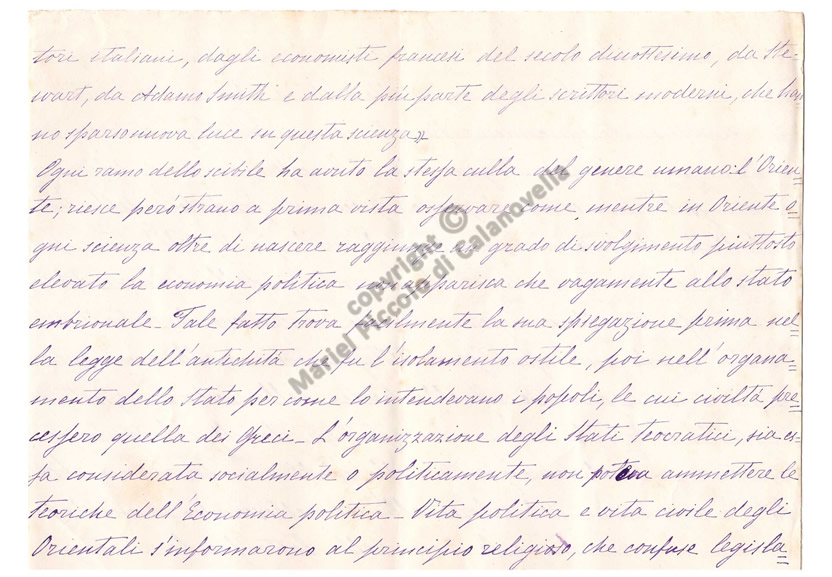 tori italiani, dagli economisti francesi del secolo diciottesimo, da Ste=
wart, da Adamo Smith e dalla più parte degli scrittori moderni, che han
no sparso nuova luce su questa scienza»
Ogni ramo dello scibile ha avuto la stessa culla del genere umano: l'Orien=
te; riesce però strano a prima vista osservare come, mentre in Oriente o=
gni scienza oltre di nascere raggiunse un grado di svolgimento piuttosto
elevato la economia politica non apparisca che vagamente allo stato
embrionale – Tale fatto trova facilmente la sua spiegazione prima nel=
la legge dell'antichità che fu l'isolamento ostile, poi nell'organa=
mento dello Stato per come lo intendevano i popoli, le cui civiltà pre=
cessero quella dei Greci – L'organizzazione degli Stati teocratici, sia es=
sa considerata socialmente o politicamente, non poteva ammettere le
teoriche dell'Economia politica – Vita politica e vita civile degli
Orientali s'informarono al principio religioso, che confuse legisla=
copyright ©
Mariel Piccolo di Calanovella